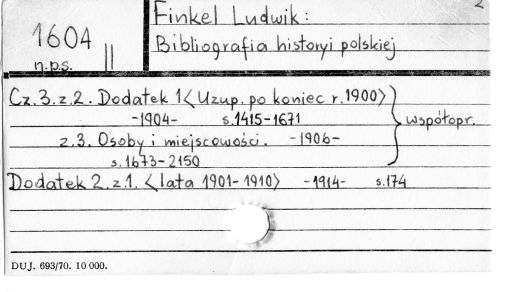 2
Finkel Ludwik:
1604 ||
Bibliografia historyi polskiej
n.p.s.
Cz.3.z.2. Dodatek 1 <Uzup. po koniec r.1900>
-1904- s.1415-1671 współopr.
z.3. Osoby i miejscowości. -1906-
s.1673-2150
Dodatek 2.z.1. <lata 1901-1910> -1914- s.174
DUJ. 693/70. 10 000.